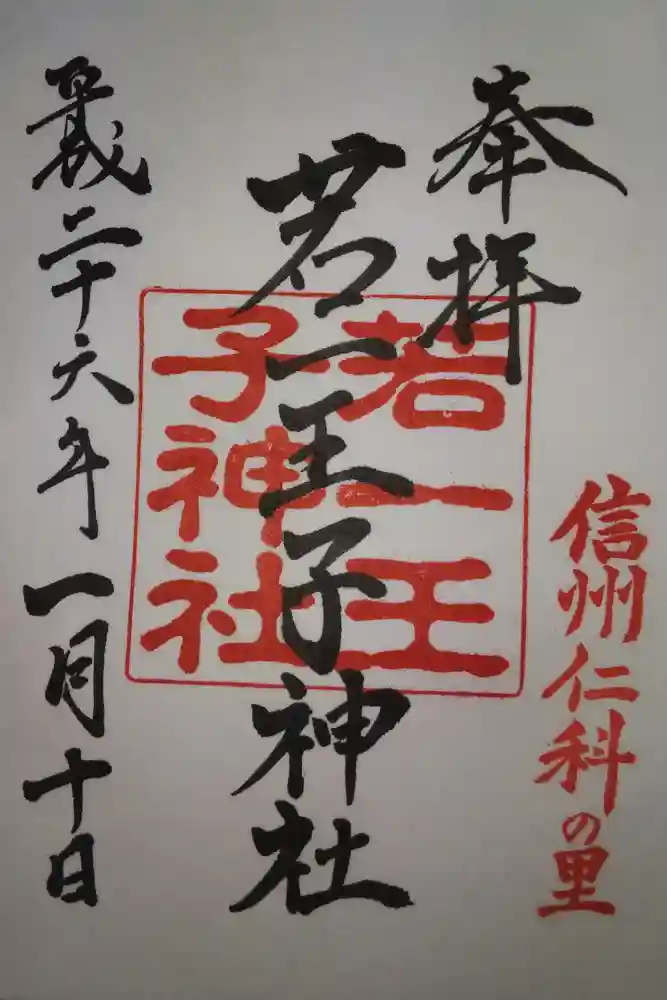 奉拝
信州仁科の里
若一王子神社
若一王
子神社
平成二十六年一月十日